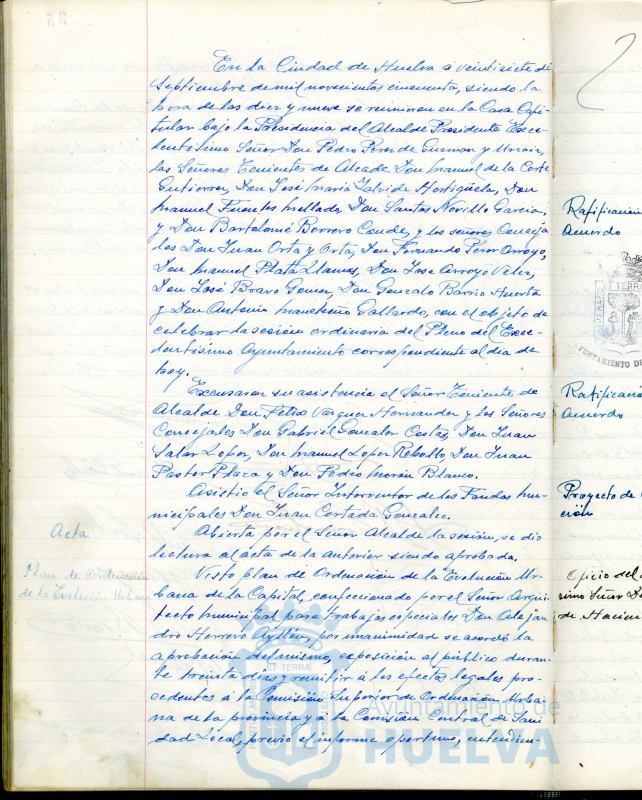 En la Ciudad de Huelva a veintisiete de
Septiembre de mil novecientos cincuenta, siendo la
hora de las diez y nueve se reunieron en la Casa Capi-
tular bajo la Presidencia del Alcalde Presidente Exce-
lentísimo Señor Don Pedro Perez de Guzman y Urzaiz,
los Señores Tenientes de Alcade Don Manuel de la Corte
Gutierrez, Don José Maria Hortigüela, Don
Manuel Fuentes Mellado, Don Santos Novillo Garcia,
y Don Bartolomé Borrero Conde, y los señores Conceja
les Don Juan Orta y Orta, Don Fernando Perez Arroyo,
Don Manuel Plata Llamas, Don Jose Arroyo Velez,
Don José Bravo Gomez, Don Gonzalo Barrio Huerta
y Don Antonio Mancheño Gallardo, con el objeto de
celebrar la sesión ordinaria del Pleno del Exce-
lentísimo Ayuntamiento correspondiente al dia de
hoy.
Excusaron su asistencia el Señor Teniente de
Alcalde Don Pedro Vazquez Hernandez y los Señores
Concejales Don Gabriel Gonzalez Costas, Don Juan
Salas Lopez, Don Manuel Lopez Rebollo, Don Juan
Pastor Plaza y Don Pedro Morón Blanco.
Asistió el Señor Interventor de los Fondos mu-
nicipales Don Juan Cortada Gonzalez.
Abierta por el Señor Alcalde la sesión, se dio
lectura al acta de la anterior siendo aprobada.
Visto plan de Ordenación de la Evolución Ur-
bana de la Capital, confeccionado por el Señor Arqui
tecto municipal para trabajos especiales Don Alejan
dro Herrero Ayllón, por unanimidad se acordó la
aprobación del mismo, exposición al público duran-
te treinta dias y remitir á los efectos legales pro-
cedentes á la Comisión Superior de Ordenación Urba-
na de la provincia y á la Comisión Central de Sani
dad Local, previo el informe oportuno, entendien-
Acta
Plan de Ordenación
de la Evolución Urbana
Ratificación
Acuerdo
Ratificación
Acuerdo
Proyecto de
ción
Oficio del
simo Señor De
de Hacien
TERRA
AYUNTAMIENTO DE
ET TERRÆ
Ayuntamiento de
HUELVA